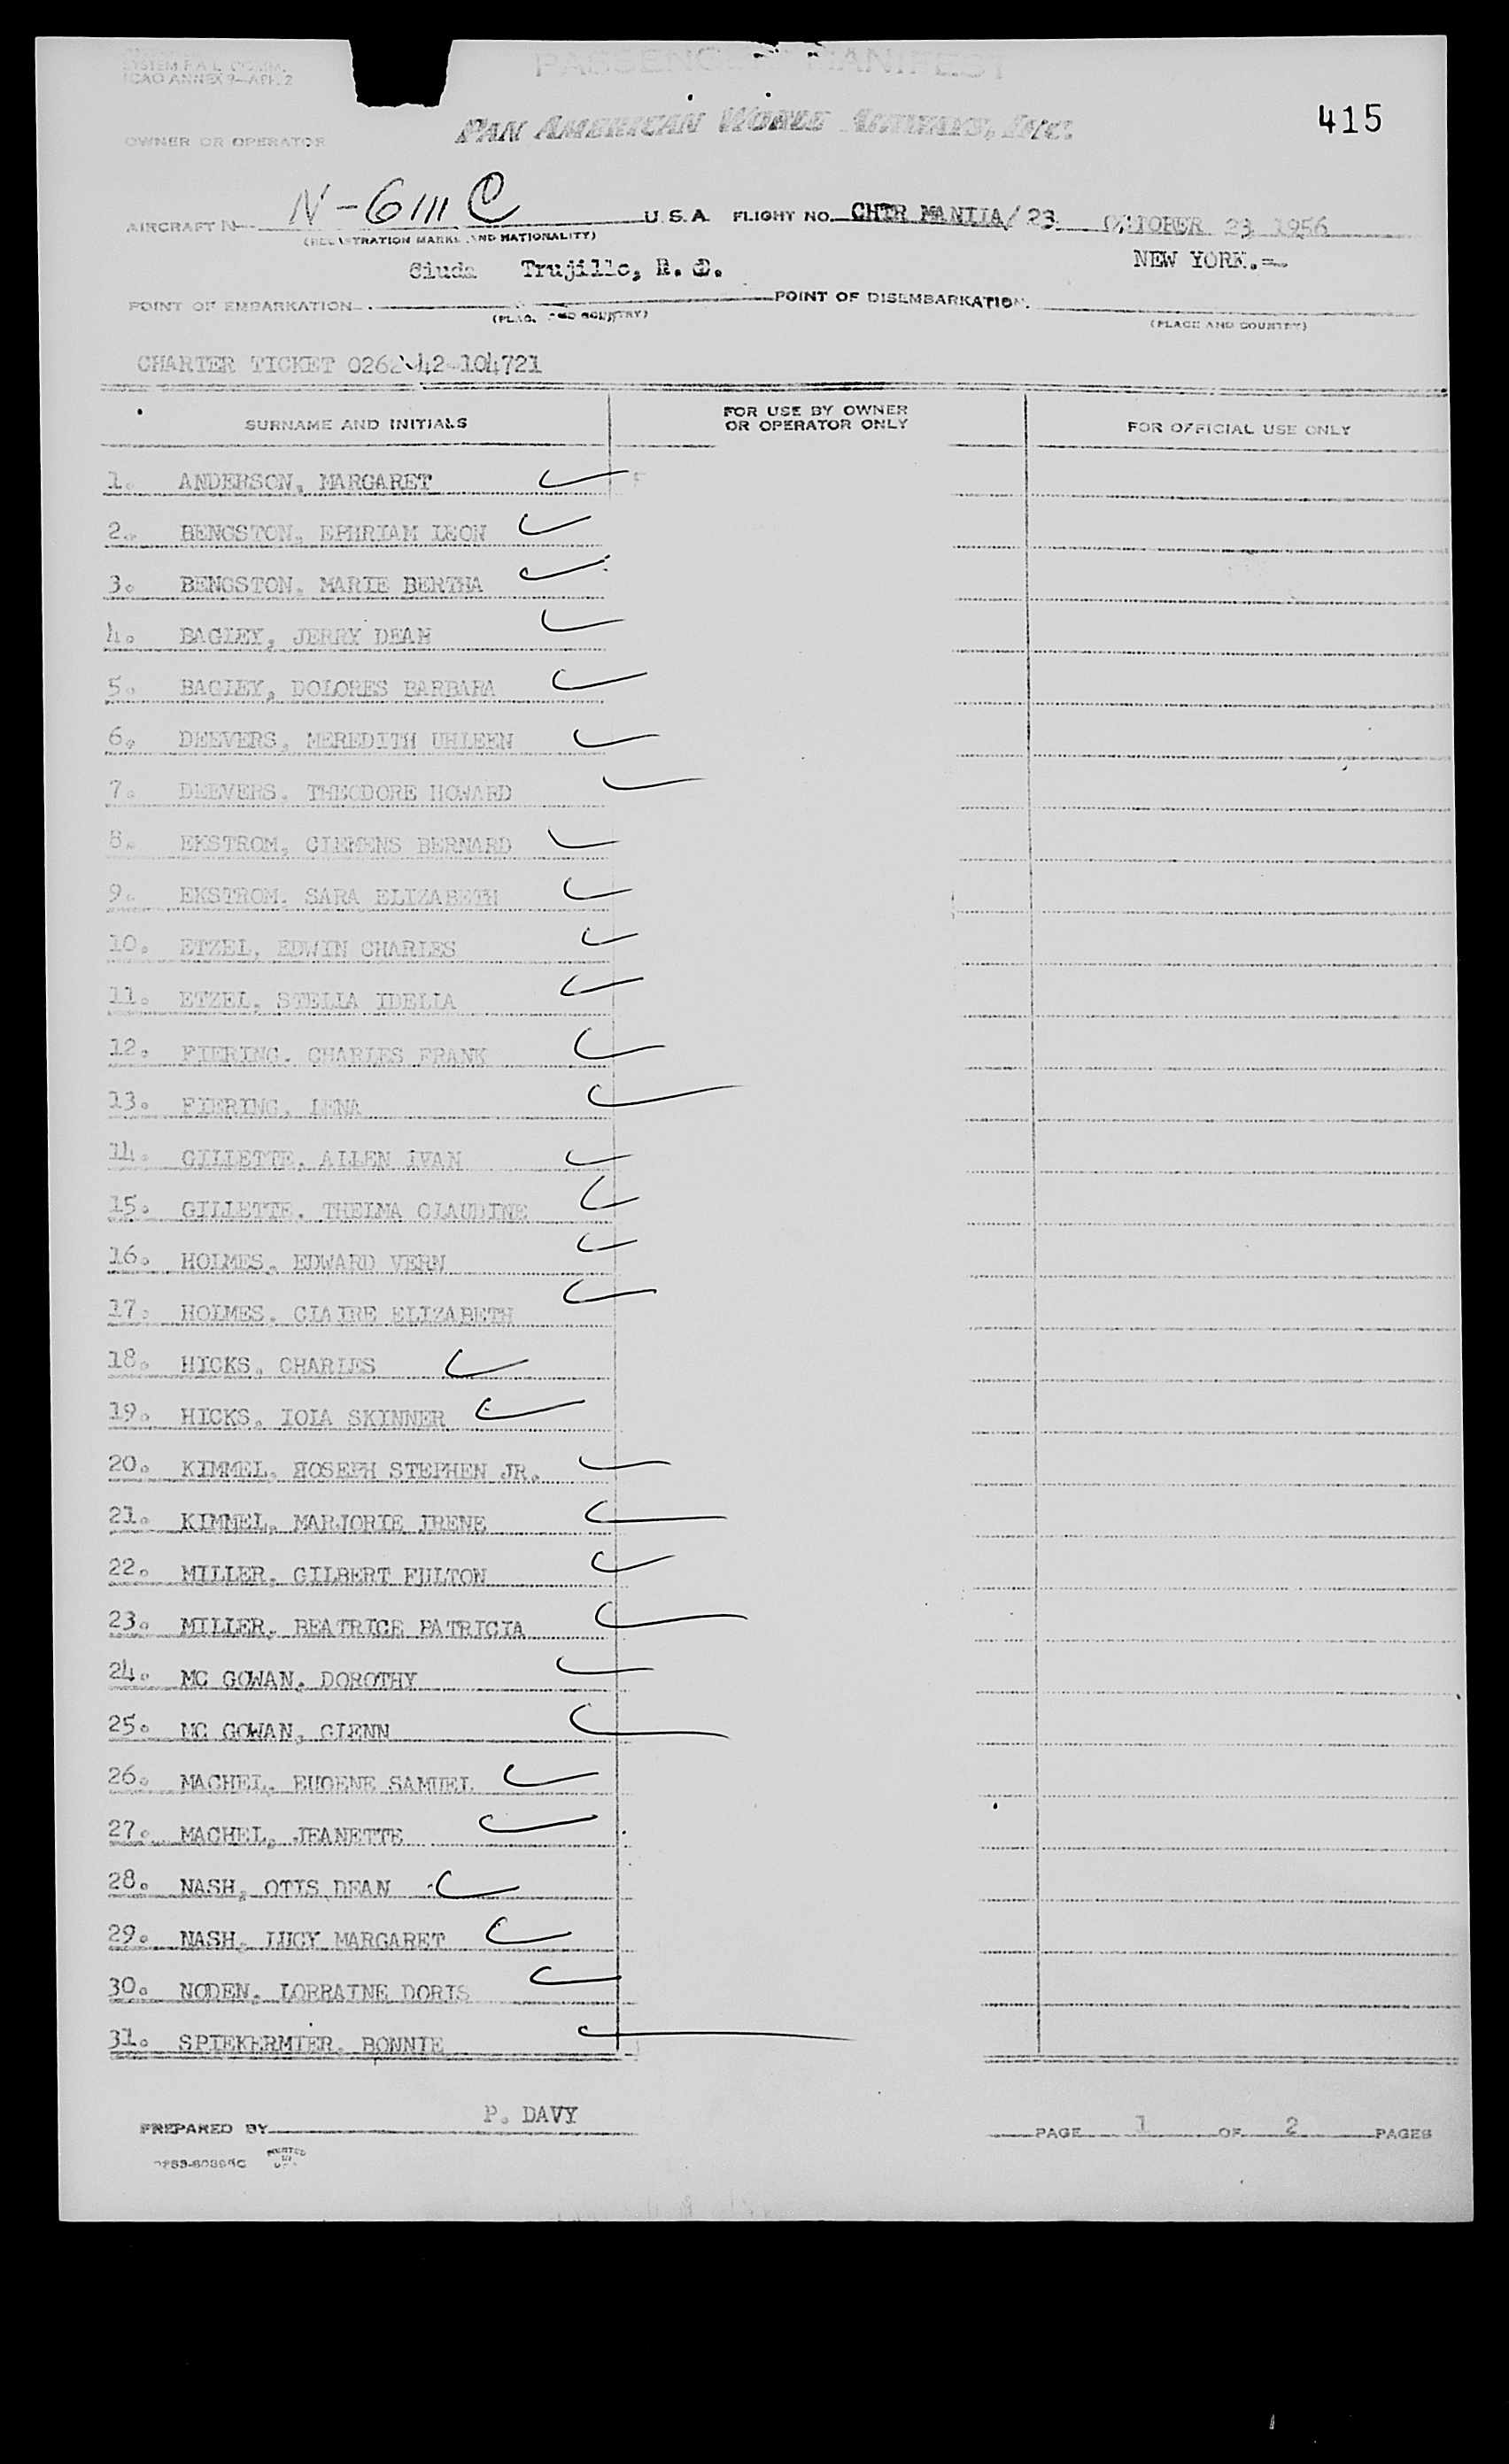 SYSTEM F.A.L. COMM.
ICAO ANNEX 9—APP. 2
PASSENGER MANIFEST
415
OWNER OR OPERATOR
PAN AMERICAN WORLD AIRWAYS, INC.
AIRCRAFT N-6111 C U.S.A. FLIGHT NO. CHTR MANIIA/23 OCTOBER 23 1956
(REGISTRATION MARKS AND NATIONALITY)
Ciuda Trujillo, R. D. NEW YORK.=
POINT OF EMBARKATION POINT OF DISEMBARKATION
(PLACE AND COUNTRY) (PLACE AND COUNTRY)
CHARTER TICKET 0262-42-104721
SURNAME AND INITIALS FOR USE BY OWNER OR OPERATOR ONLY FOR OFFICIAL USE ONLY
1. ANDERSON, MARGARET
2. BENGSTON, EPHRIAM LEON
3. BENGSTON, MARIE BERTHA
4. BAGLEY, JERRY DEAN
5. BAGLEY, DOLORES BARBARA
6. DEEVERS, MEREDITH UHLEEN
7. DEEVERS, THEODORE HOWARD
8. EKSTROM, CLEMENS BERNARD
9. EKSTROM, SARA ELIZABETH
10. ETZEL, EDWIN CHARLES
11. ETZEL, STELLA IDELLA
12. FIERING, CHARLES FRANK
13. FIERING, LENA
14. GILLETTE, ALLEN IVAN
15. GILLETTE, THELMA CLAUDINE
16. HOLMES, EDWARD VERN
17. HOLMES, CLAIRE ELIZABETH
18. HICKS, CHARLES
19. HICKS, IOLA SKINNER
20. KIMMEL, HOSEPH STEPHEN JR.
21. KIMMEL, MARJORIE IRENE
22. MILLER, GILBERT FULTON
23. MILLER, BEATRICE PATRICIA
24. MC GOWAN, DOROTHY
25. MC GOWAN, GLENN
26. MACHEL, EUGENE SAMUEL
27. MACHEL, JEANETTE
28. NASH, OTIS DEAN
29. NASH, LUCY MARGARET
30. NODEN, LORRAINE DORIS
31. SPIEKERMIER, BONNIE
PREPARED BY P. DAVY PAGE 1 OF 2 PAGES
PRINTED IN